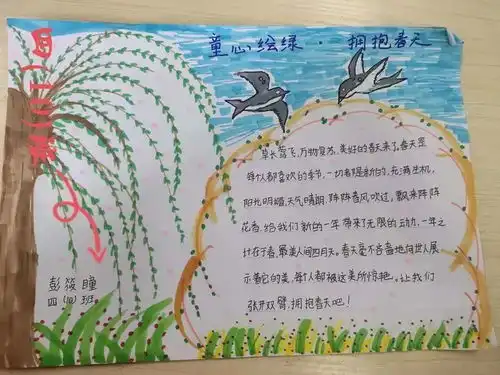 童心绘绿·拥抱春天
草长莺飞,万物复苏,美好的春天来了,春天是
每个人都喜欢的季节,一切都是新的,充满生机,
阳光明媚,天气晴朗,阵阵春风吹过,飘来阵阵
花香,给我们新的一年带来了无限的动力,一年之
计在于春,最美人间四月天。春天毫不吝啬地向世人展
示着它的美,每个人都被这美所惊艳。让我们
张开双臂,拥抱春天吧!
彭筱瞳
四(10)班